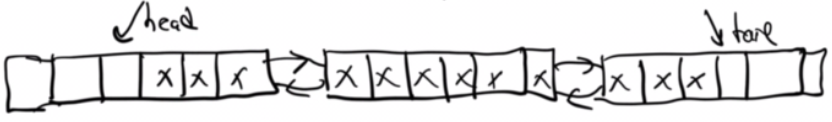 head tare
x x x x x x x x x x x x